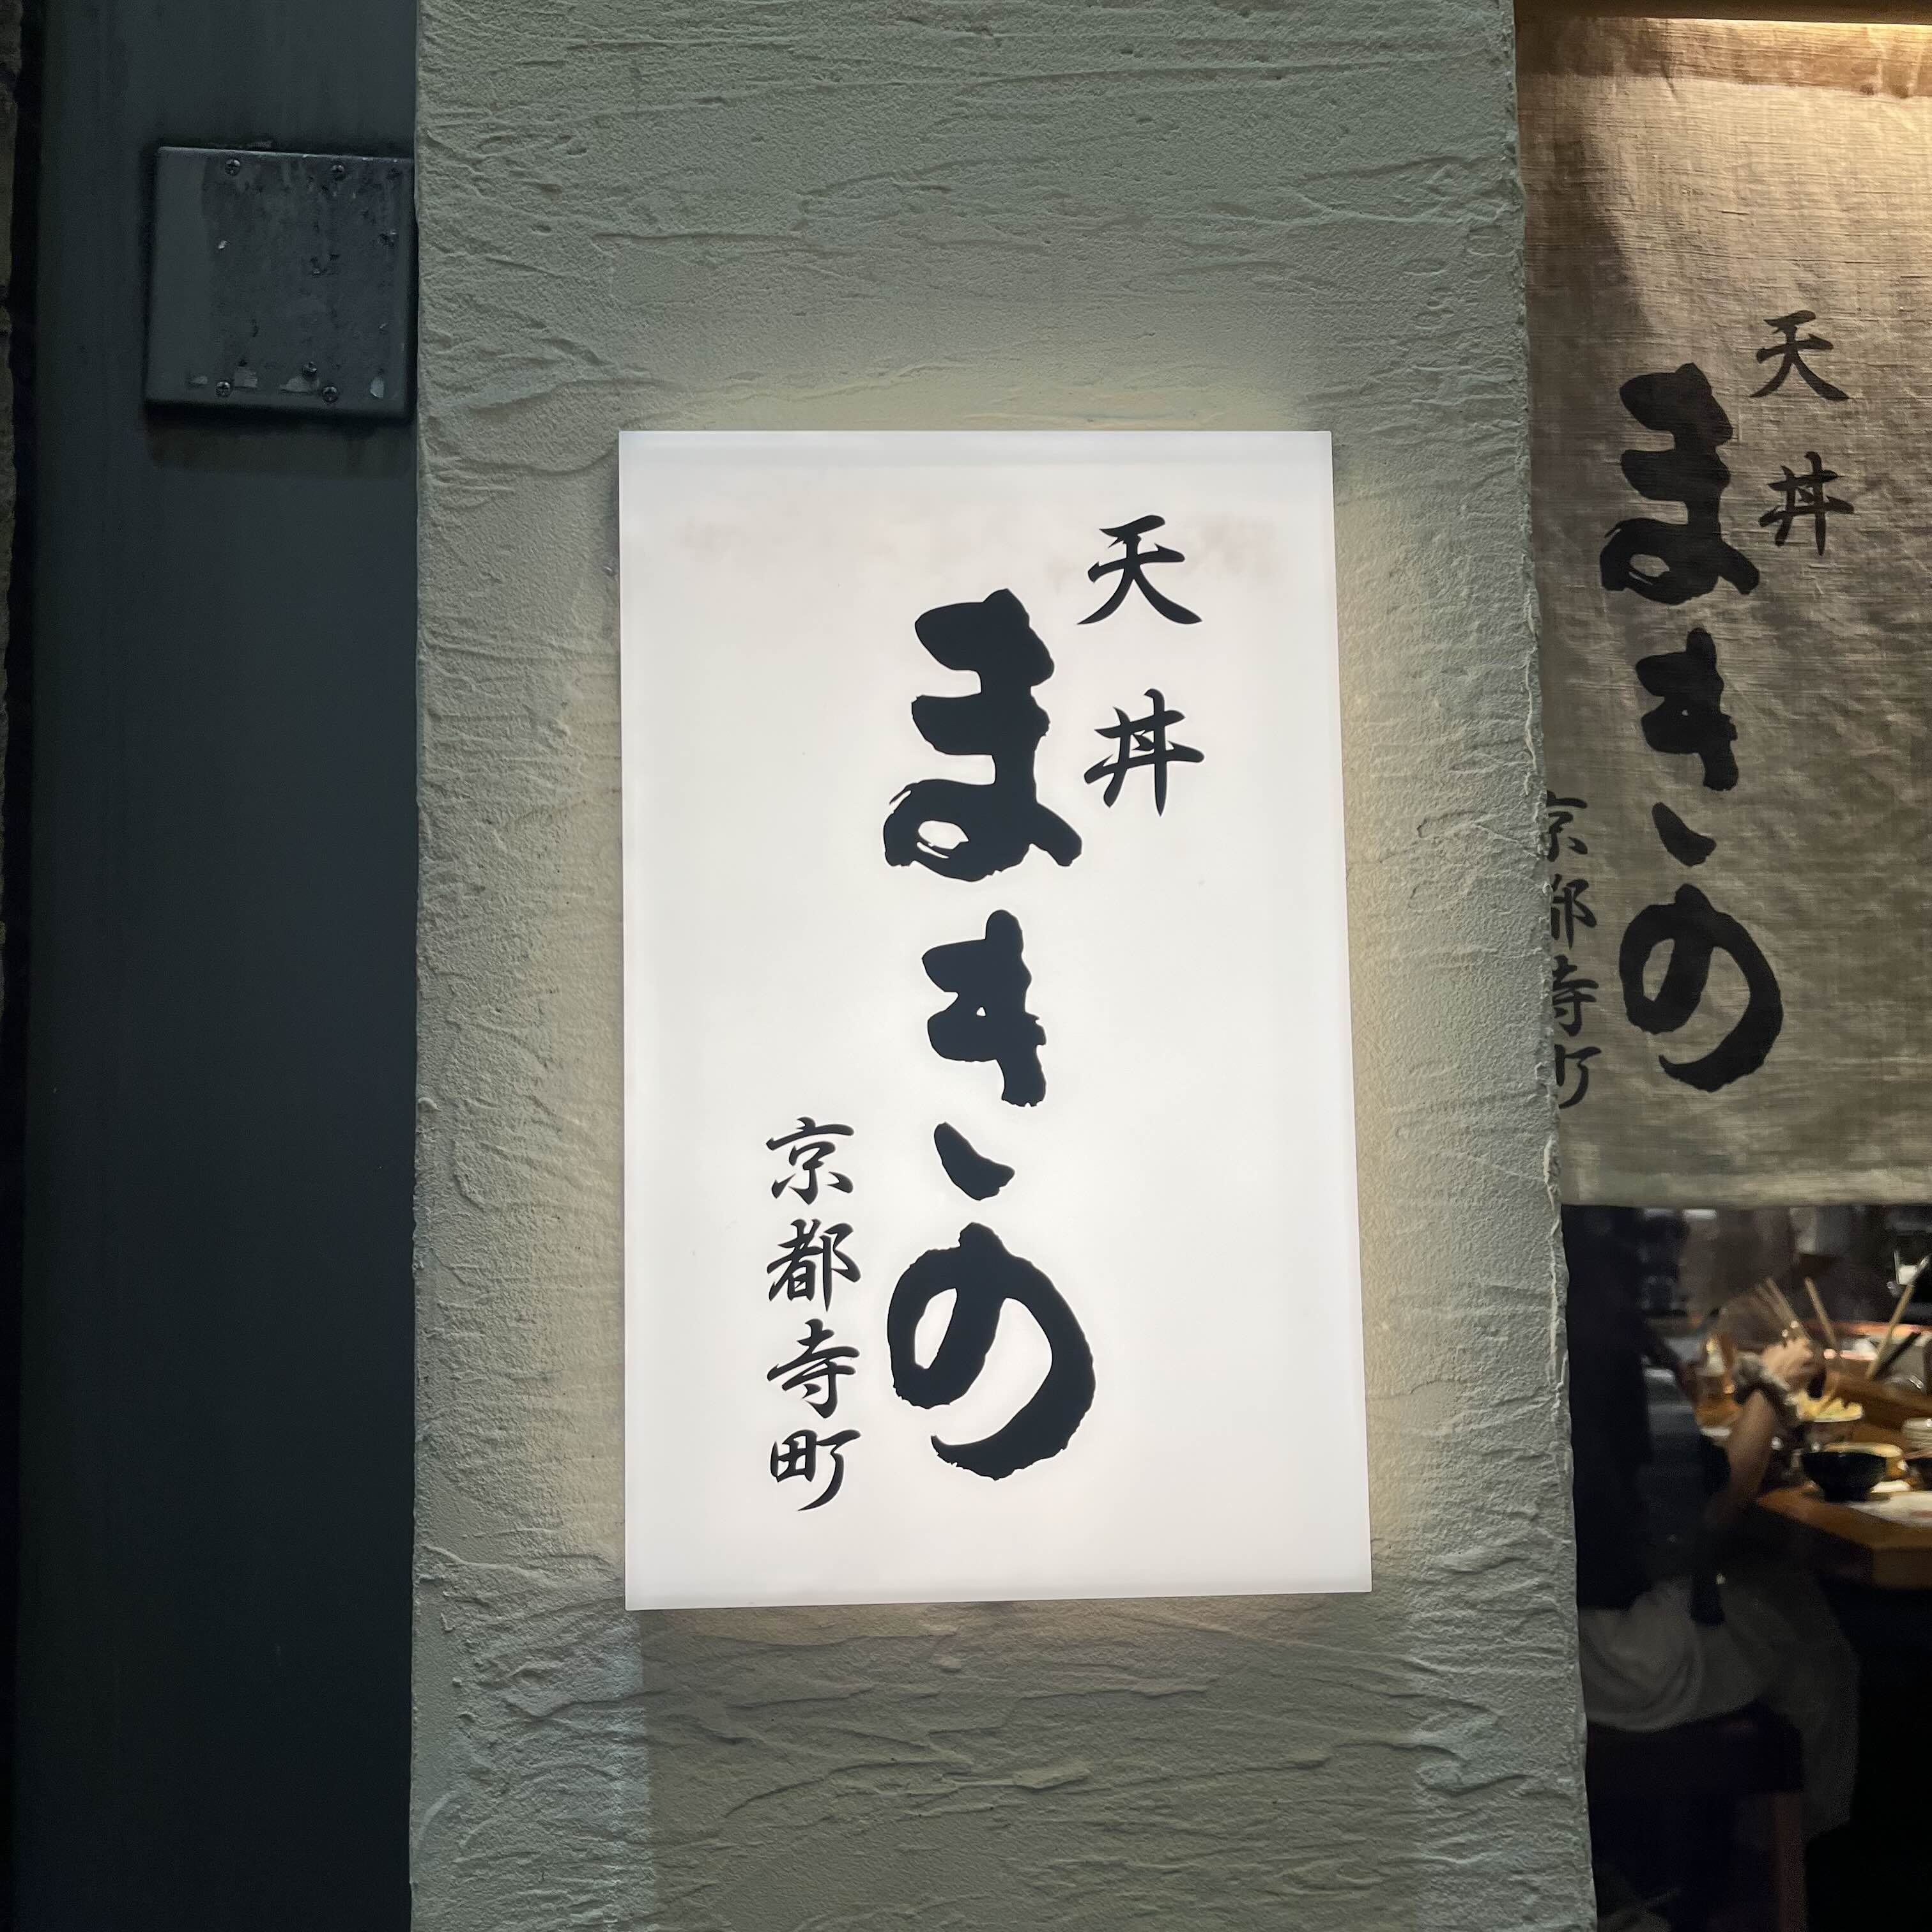 天丼
まきの
京都寺町
天丼
まきの
京都寺町